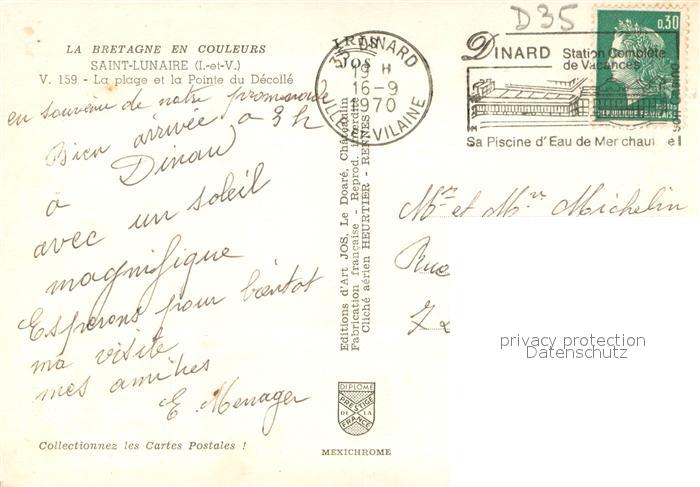 D35
LA BRETAGNE EN COULEURS
SAINT-LUNAIRE (I.-et-V.)
V. 159 - La plage et la Pointe du Décollé
en souvenir de notre promenade
Bien arrivée à 3 h
à Dinan
avec un soleil
magnifique
Espérons pour bientôt
ma visite
mes amitiés
E. Menager
Collectionnez les Cartes Postales !
IRIS
JOS
35 DINARD
19 H
16-9
1970
ILLE & VILAINE
Editions d'Art JOS, Le Doaré, Châteaulin
Fabrication française - Reprod. interdite
Cliché aérien HEURTIER - RENNES
DIPLOME
PRESTIGE
DE LA
FRANCE
MEXICHROME
DINARD Station Complète
de Vacances
Sa Piscine d'Eau de Mer chauffée !
0,30
REPUBLIQUE FRANCAISE
Mr et Mme Michelin
Rue
privacy protection
Datenschutz